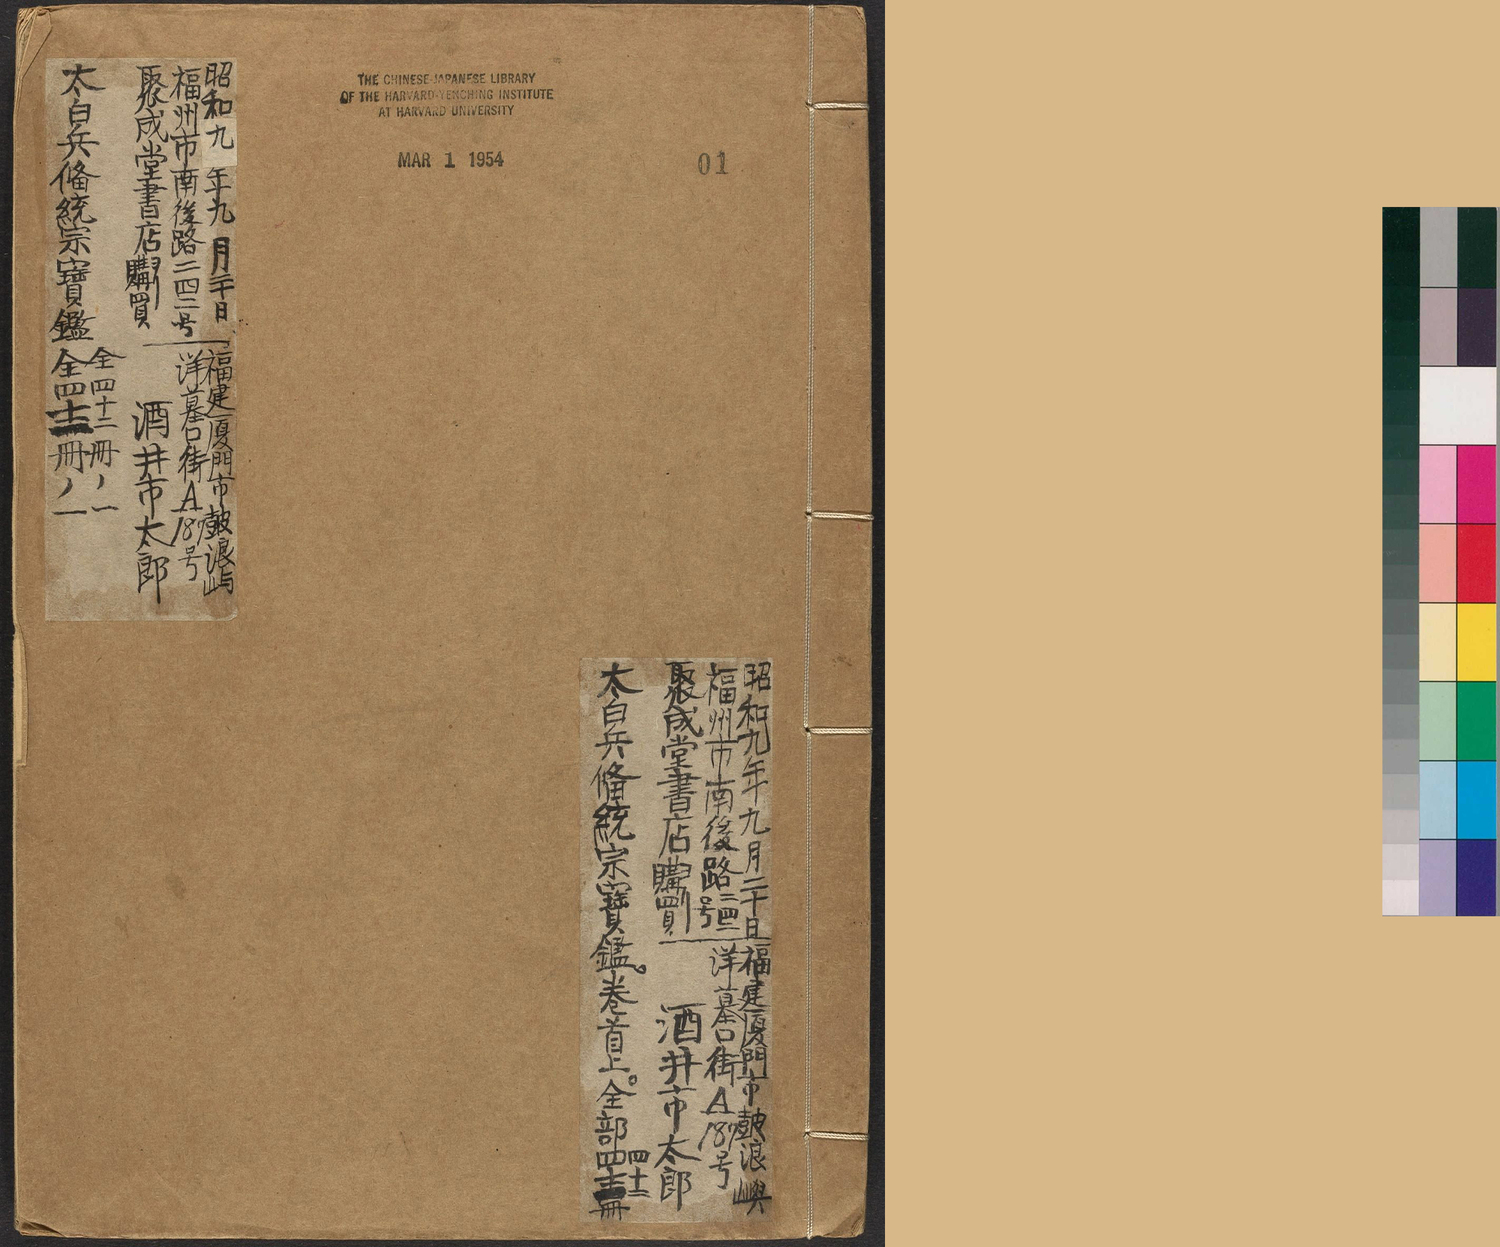 THE CHINESE-JAPANESE LIBRARY
OF THE HARVARD-YENCHING INSTITUTE
AT HARVARD UNIVERSITY
MAR 1 1954
01
昭和九年九月二十日
福州市南後路二四二号
聚成堂書店ヨリ購買
福建厦門市鼓浪屿
洋墓口街A187号
酒井市太郎
太白兵俻統宗寶鑑
全四十二冊ノ一
全四十冊ノ一
昭和九年九月二十日
福州市南後路二四二号
聚成堂書店ヨリ購買
福建厦門市鼓浪嶼
洋墓口街A187号
酒井市太郎
太白兵俻統宗寶鑑。卷首上。全部四十二冊